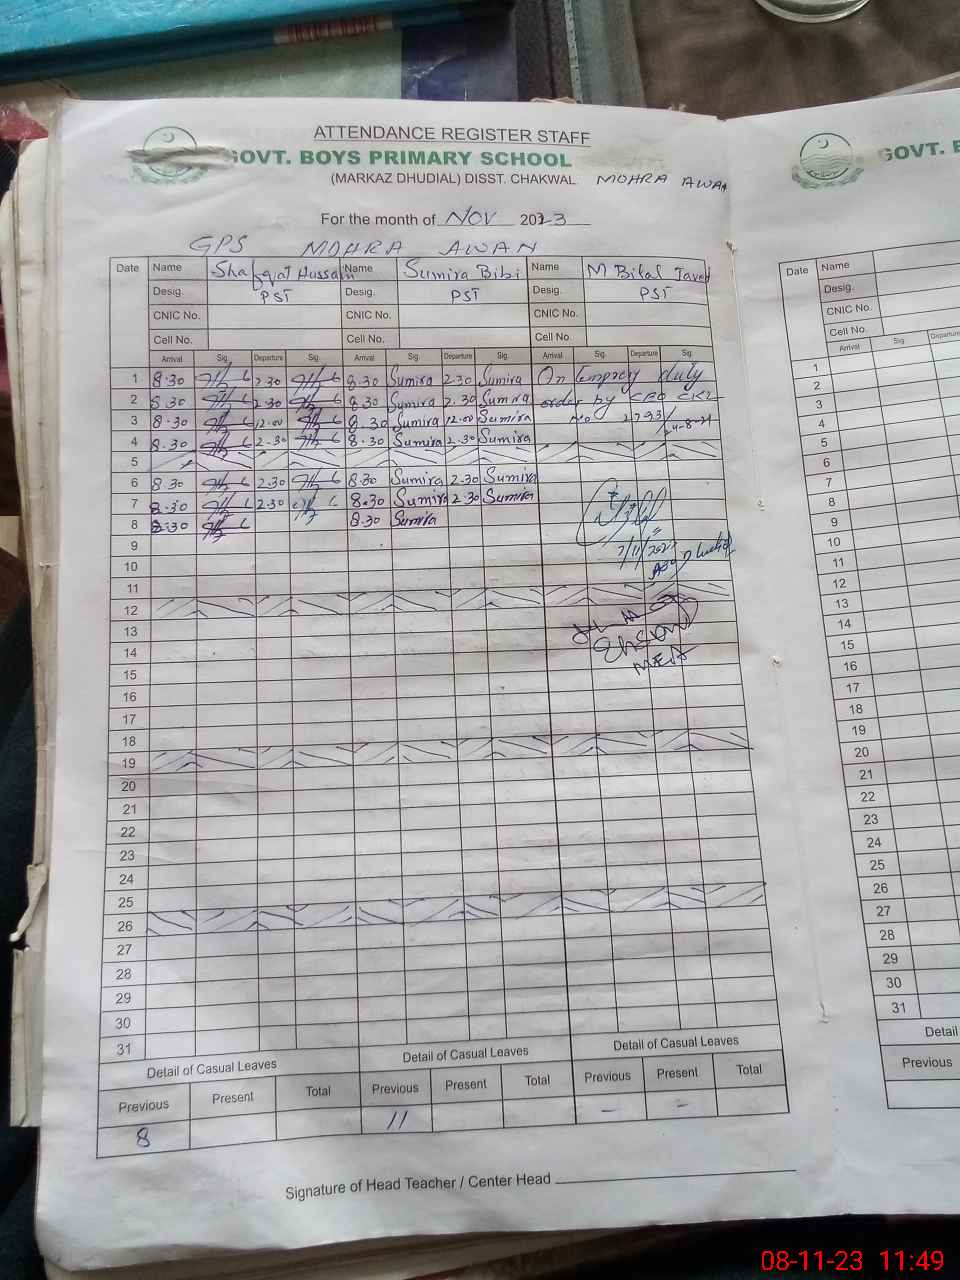 ATTENDANCE REGISTER STAFF
GOVT. BOYS PRIMARY SCHOOL
(MARKAZ DHUDIAL) DISST. CHAKWAL MOHRA AWAN
For the month of NOV 2023
GPS MOHRA AWAN
Date Name Shafqat Hussain Name Sumira Bibi Name M Bilal Javed
Desig. PST Desig. PST Desig. PST
CNIC No. CNIC No. CNIC No.
Cell No. Cell No. Cell No.
Arrival Sig. Departure Sig. Arrival Sig. Departure Sig. Arrival Sig. Departure Sig.
1 8.30 2.30 8.30 Sumira 2.30 Sumira On temprery duty
2 8.30 2.30 8.30 Sumira 2.30 Sumira order by CEO CKL
3 8.30 12.00 8.30 Sumira 12.00 Sumira No 2793/
4 8.30 2.30 8.30 Sumira 2.30 Sumira 24-8-21
5
6 8.30 2.30 8.30 Sumira 2.30 Sumira
7 8.30 2.30 8.30 Sumira 2.30 Sumira
8 8.30 8.30 Sumira
9 7/11/2023
10
11
12
13
14
15 MEA
16
17
18
19
20
21
22
23
24
25
26
27
28
29
30
31
Detail of Casual Leaves Detail of Casual Leaves Detail of Casual Leaves
Previous Present Total Previous Present Total Previous Present Total
8 11 - -
Signature of Head Teacher / Center Head
GOVT. B
Date Name
Desig.
CNIC No.
Cell No.
Arrival Sig. Departure
1
2
3
4
5
6
7
8
9
10
11
12
13
14
15
16
17
18
19
20
21
22
23
24
25
26
27
28
29
30
31
Detail
Previous
08-11-23 11:49